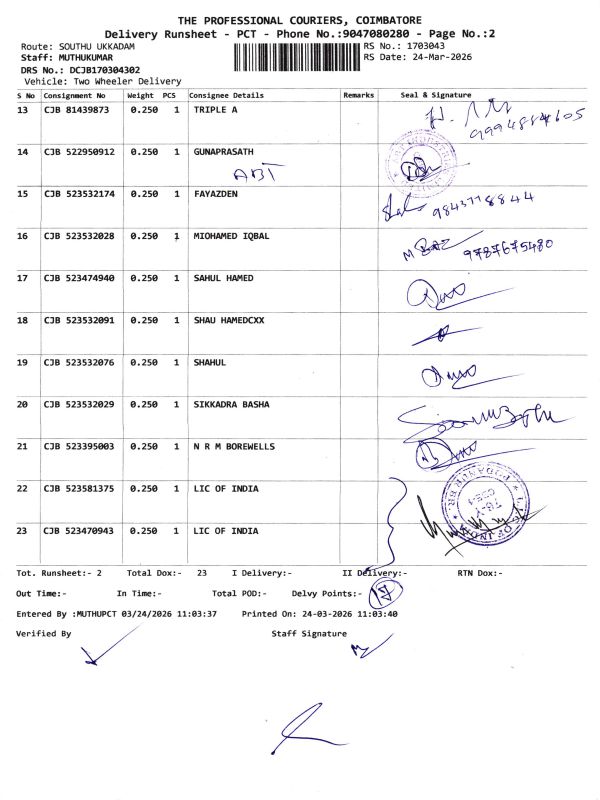 THE PROFESSIONAL COURIERS, COIMBATORE
Delivery Runsheet - PCT - Phone No.:9047080280 - Page No.:2
Route: SOUTHU UKKADAM RS No.: 1703043
Staff: MUTHUKUMAR RS Date: 24-Mar-2026
DRS No.: DCJB170304302
Vehicle: Two Wheeler Delivery
S No Consignment No Weight PCS Consignee Details Remarks Seal & Signature
13 CJB 81439873 0.250 1 TRIPLE A
14 CJB 522950912 0.250 1 GUNAPRASATH
15 CJB 523532174 0.250 1 FAYAZDEN
9843778844
16 CJB 523532028 0.250 1 MIOHAMED IQBAL
9787675480
17 CJB 523474940 0.250 1 SAHUL HAMED
18 CJB 523532091 0.250 1 SHAU HAMEDCXX
19 CJB 523532076 0.250 1 SHAHUL
20 CJB 523532029 0.250 1 SIKKADRA BASHA
21 CJB 523395003 0.250 1 N R M BOREWELLS
22 CJB 523581375 0.250 1 LIC OF INDIA
23 CJB 523470943 0.250 1 LIC OF INDIA
Tot. Runsheet:- 2 Total Dox:- 23 I Delivery:- II Delivery:- RTN Dox:-
Out Time:- In Time:- Total POD:- Delvy Points:-
Entered By :MUTHUPCT 03/24/2026 11:03:37 Printed On: 24-03-2026 11:03:40
Verified By Staff Signature